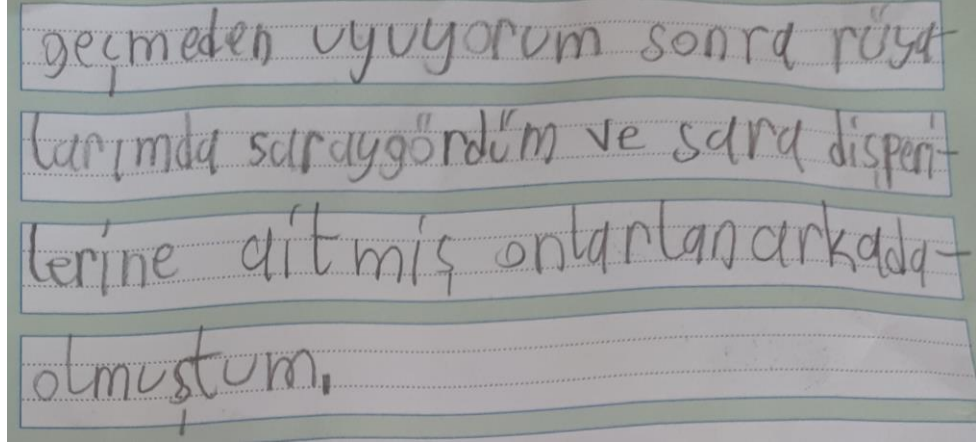 geçmeden uyuyorum sonra rüya-
larımda saraygördüm ve sara dişperi-
lerine aitmiş onlarlan arkada-
olmuştum.